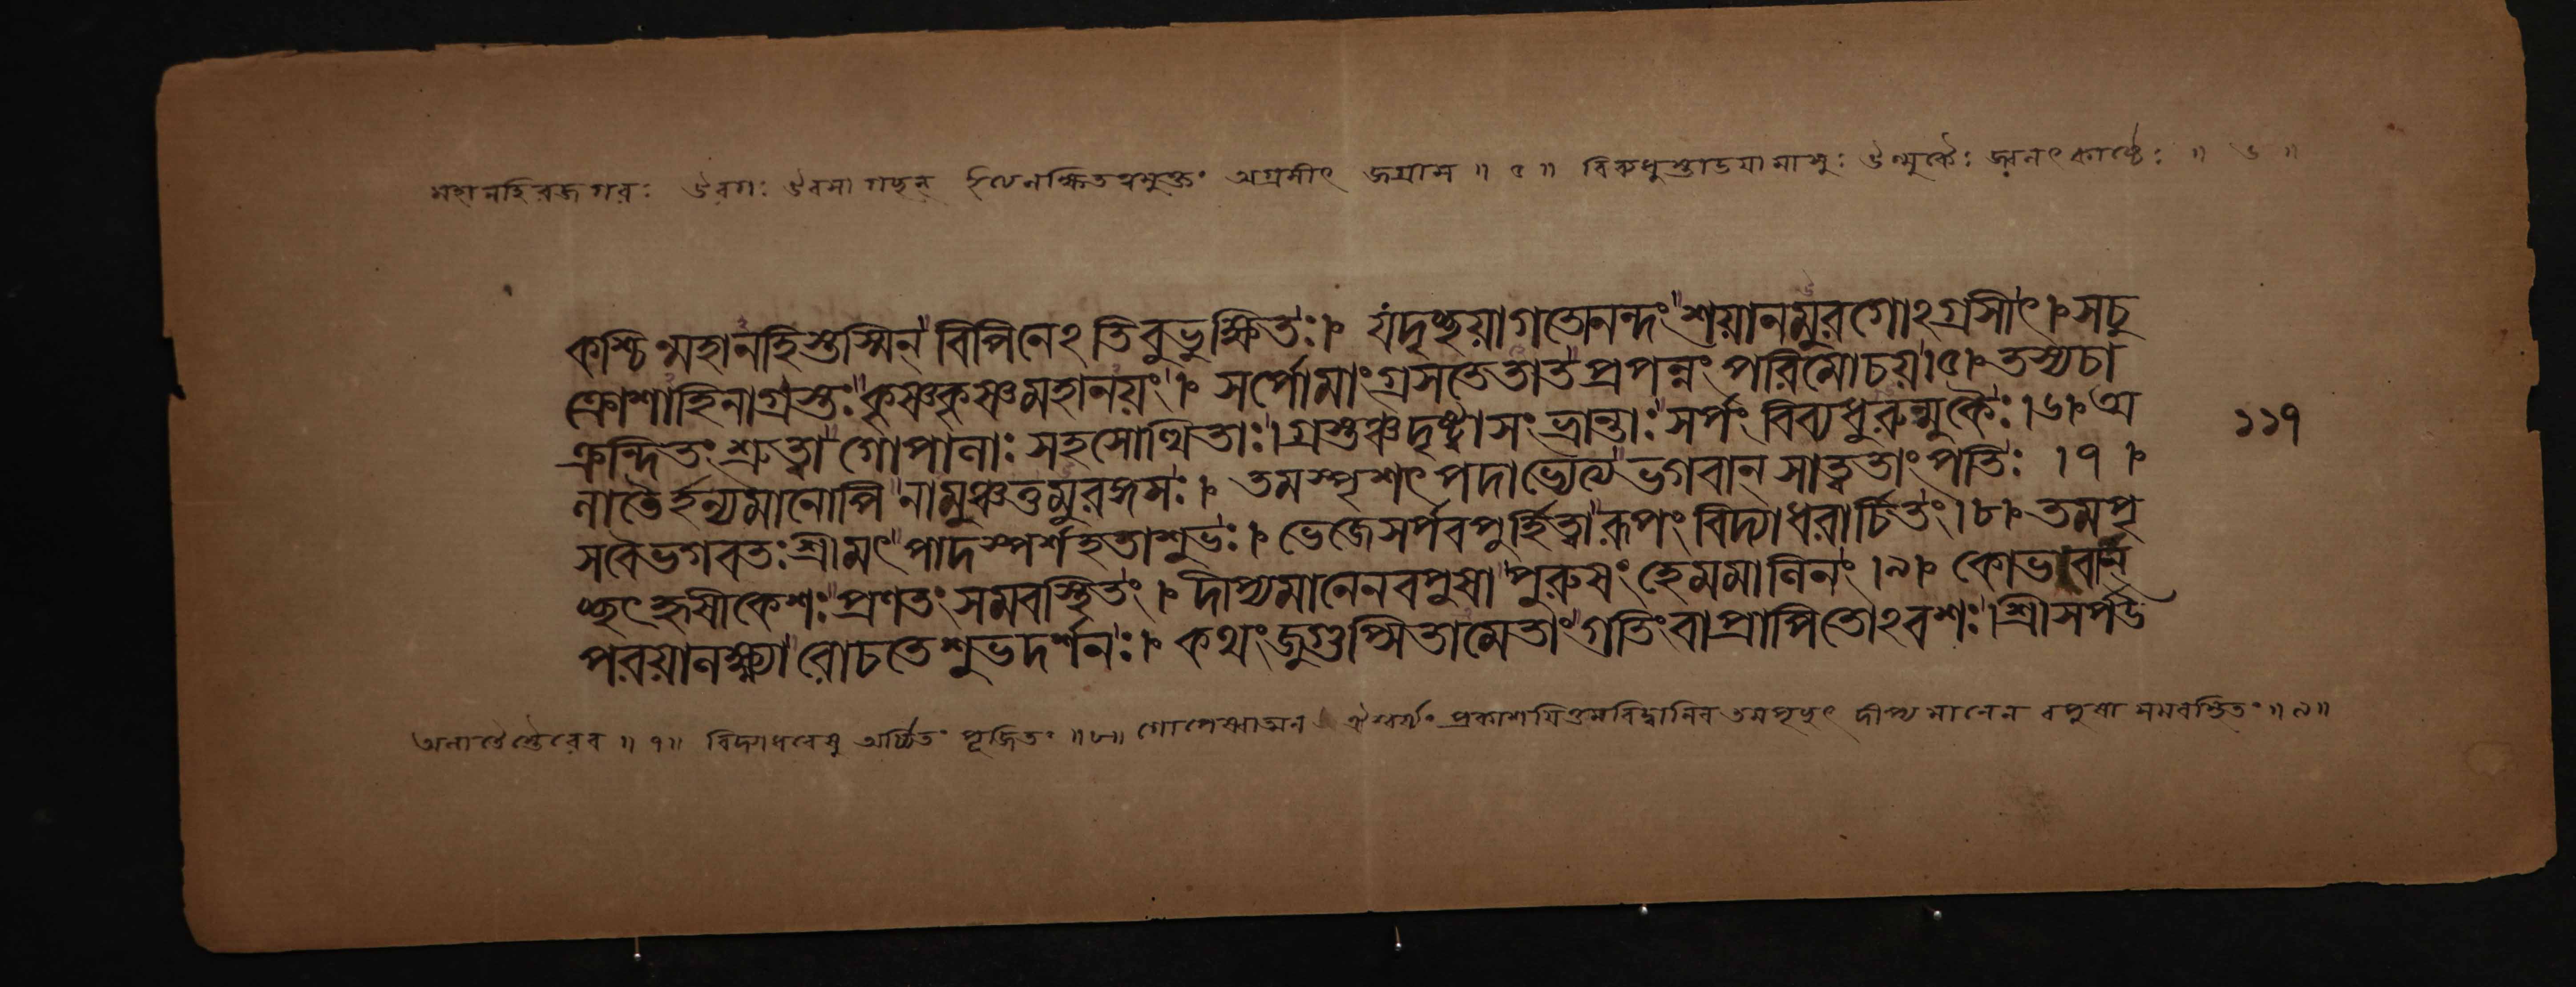 মহানহিরজগরঃ উরগঃ উরসা গছন্ অগ্রসীৎ জগ্রাস ॥ ৫ ॥ বিব্যধুস্তাডয়ামাসুঃ উল্মুকৈঃ জ্বলৎকাষ্ঠৈঃ ॥ ৬ ॥
কশ্চিন্মহানহিস্তস্মিন্ বিপিনেঽতিবুভুক্ষিতঃ। যদৃচ্ছয়াগতোনন্দং শয়ানমুরগোঽগ্রসীৎ। সচু
ক্রোশাহিনাগ্রস্তঃ কৃষ্ণকৃষ্ণমহানয়ং। সর্পোমাংগ্রসতেতাত প্রপন্নং পরিমোচয়।৫। তস্যচা
ক্রন্দিতং শ্রুত্বা গোপালাঃ সহসোত্থিতাঃ। গ্রস্তঞ্চদৃষ্ট্বাসংভ্রান্তাঃ সর্পং বিব্যধুরুল্মুকৈঃ।৬। অ
লাতৈর্হন্যমানোপি নামুঞ্চত্তমুরঙ্গমঃ। তমস্পৃশৎ পদাভ্যেত্য ভগবান্ সাত্ত্বতাং পতিঃ ।৭।
সবৈভগবতঃ শ্রীমৎ পাদস্পর্শহতাশুভঃ। ভেজেসর্পবপুর্হিত্বা রূপং বিদ্যাধরার্চিতং।৮। তমপৃ
চ্ছৎ হৃষীকেশঃ প্রণতং সমবস্থিতং। দীপ্যমানেনবপুষা পুরুষং হেমমালিনং।৯। কোভবান্
পরয়ালক্ষ্ম্যা রোচতেশুভদর্শনঃ। কথং জুগুপ্সিতামেতাং গতিংবাপ্রাপিতোঽবশঃ। শ্রীসর্পউ
১১৭
॥ ৭ ॥ বিদ্যাধরেষু অর্চ্চিতং পূজিতং ॥ ৮ ॥ ঐশ্বর্য্যং প্রকাশয়িতুমবিদ্বানিব তমপৃছৎ দীপ্যমানেন বপুষা সমবস্থিতং ॥ ৯ ॥